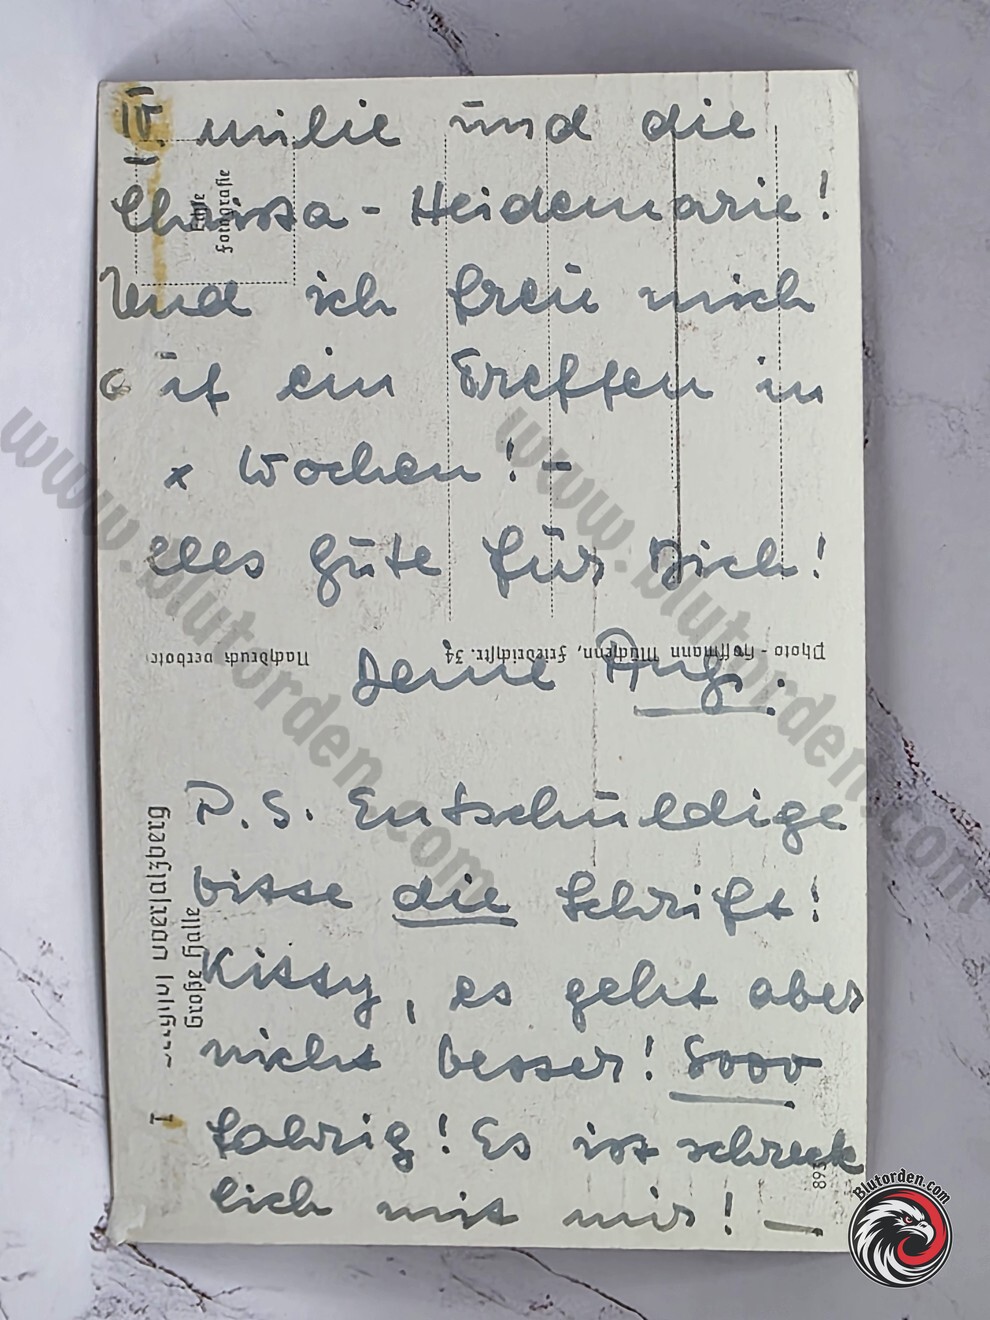 IV milie und die
Christa - Heidemarie!
Und ich freu mich
auf ein Treffen in
x Wochen! -
Alles Gute für Dich!
Deine
P.S. Entschuldige
bitte die Schrift!
Kitty, es geht aber
nicht besser! Sooo
fahrig! Es ist schreck
lich mit mir! —
Echte
Fotografie
Photo-Hoffmann München, Friedrichstr. 34
Nachdruck verboten
Obersalzberg
Große Halle
893
www.blutorden.com
www.blutorden.com
Blutorden.com